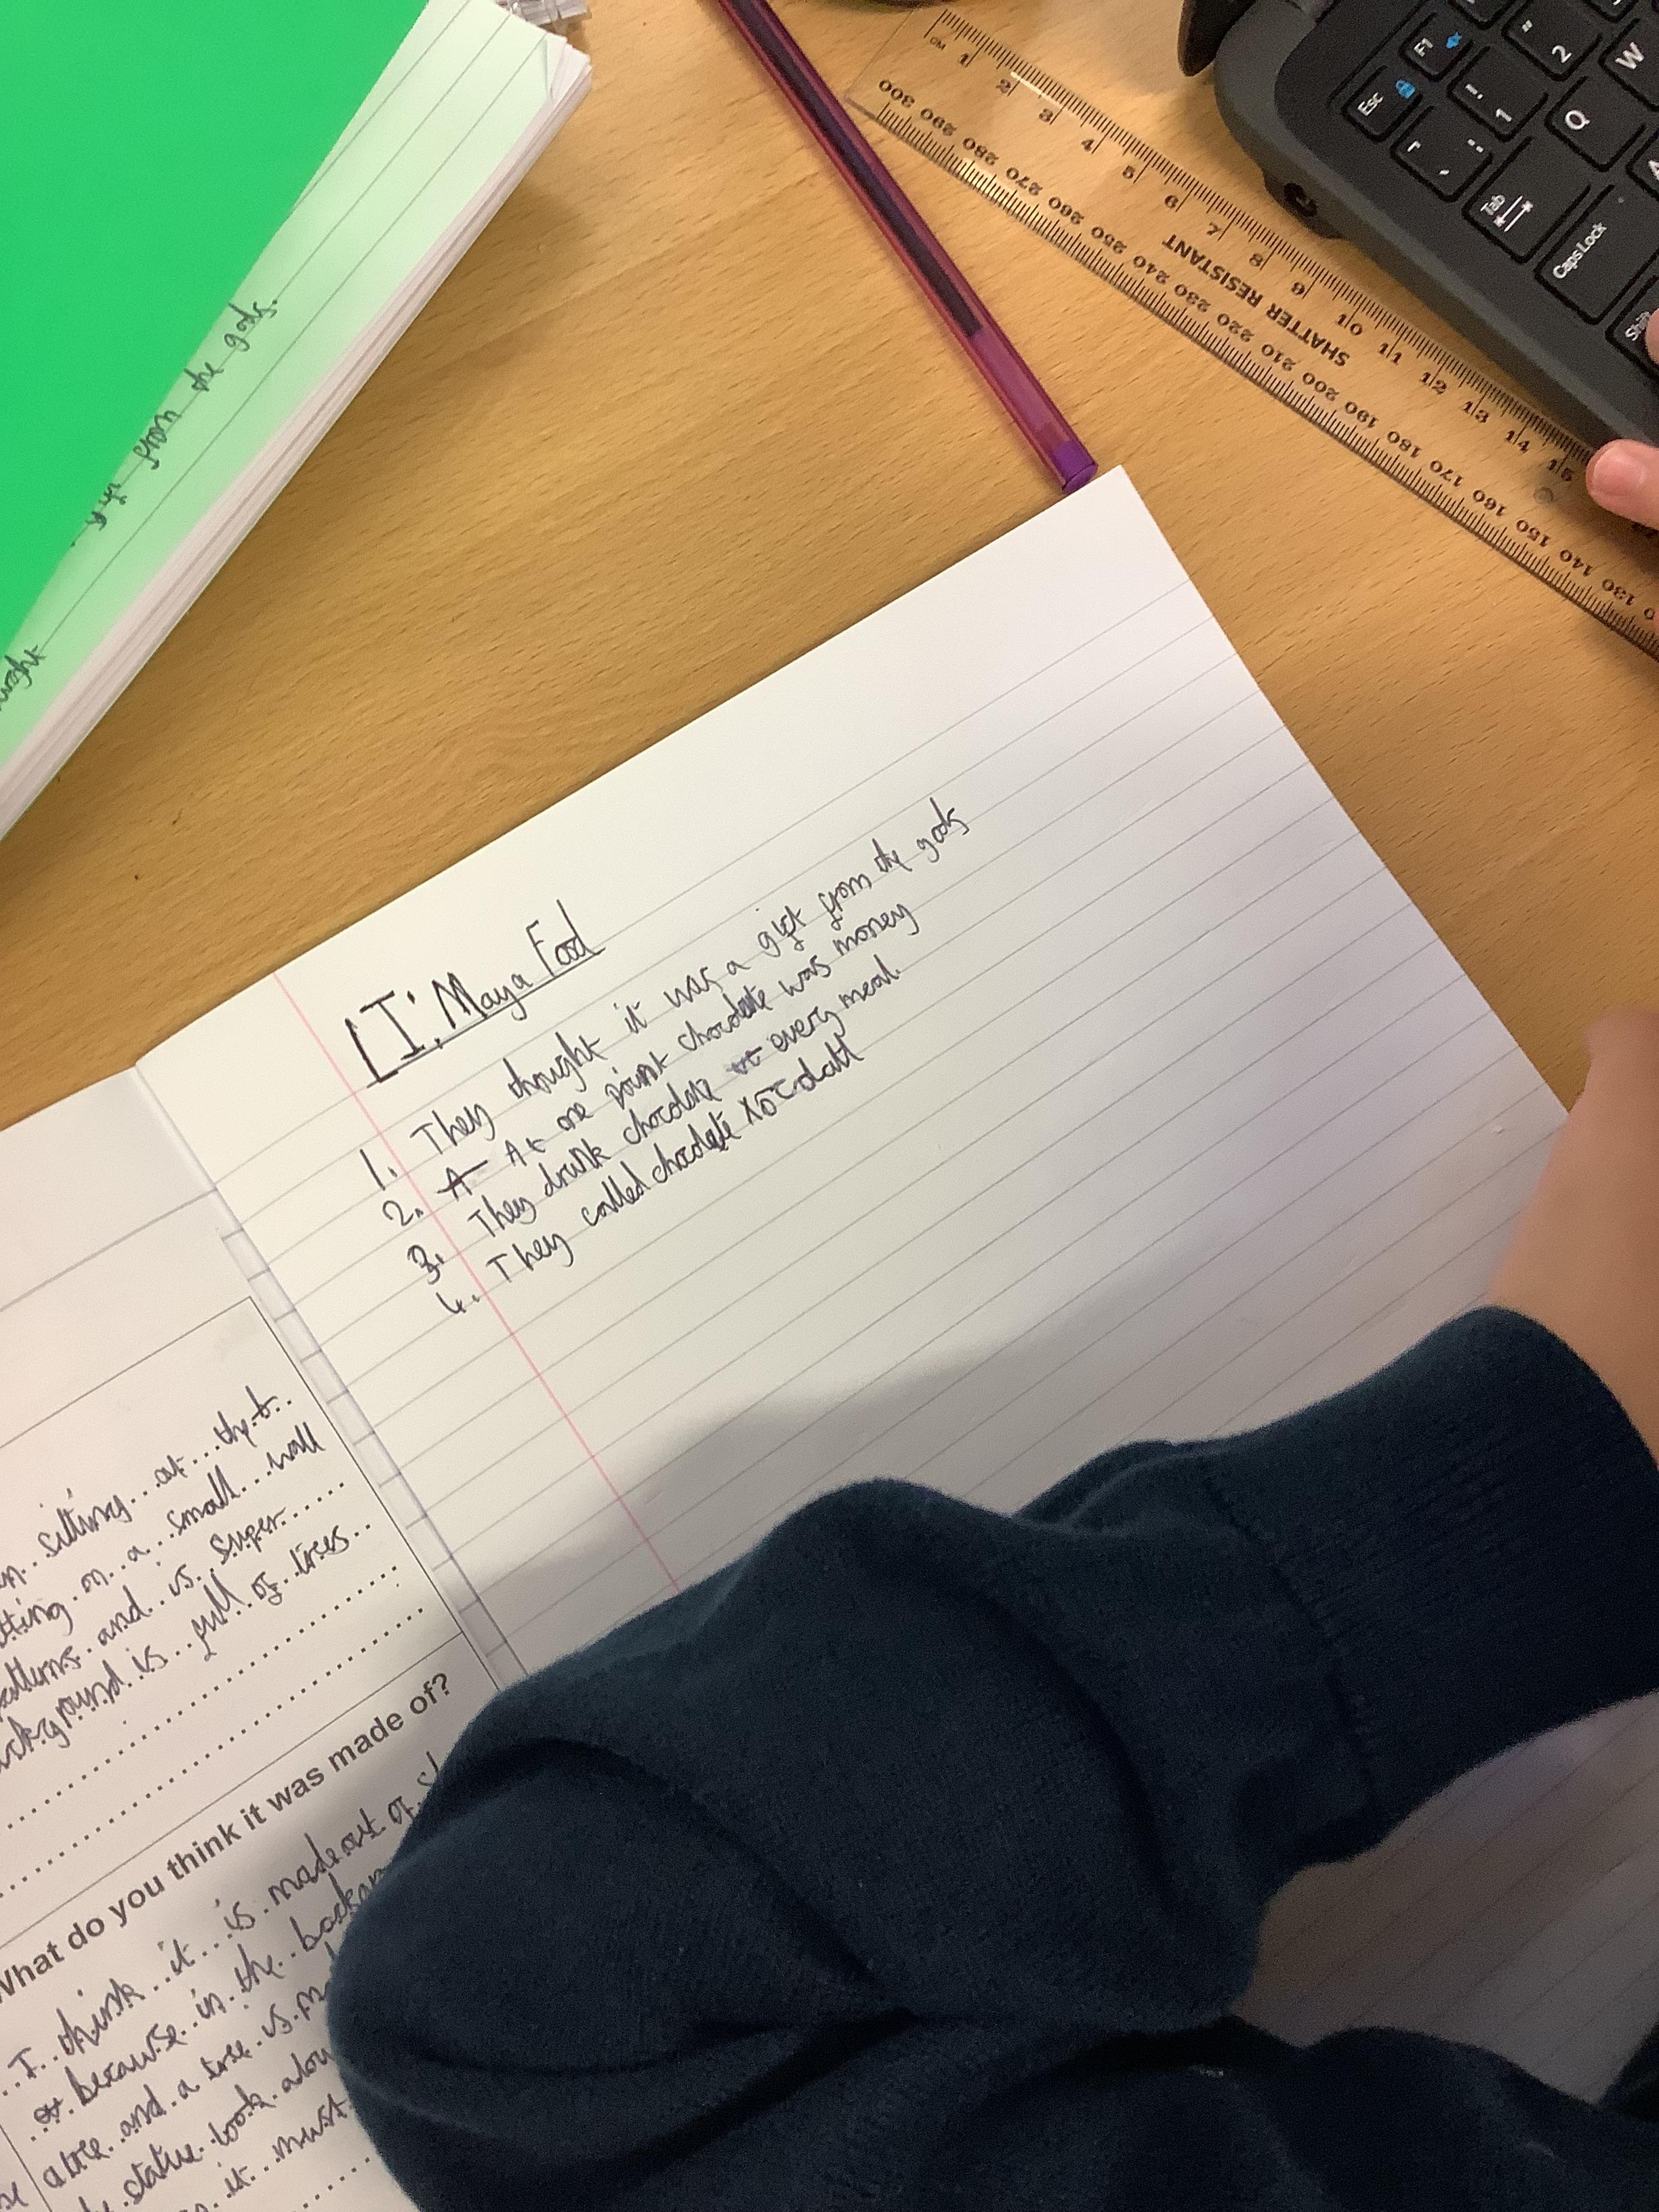 LI: Maya Food
1. They thought it was a gift from the gods
2. A At one point chocolate was money
3. They drunk chocolate at every meal.
4. They called chocolate xocolatl
from the gods.
sitting at the b
sitting on a small wall
patterns and is super
background is full of trees
What do you think it was made of?
I think it is made out of
because in the
and a tree is
statue look
it must
SHATTER RESISTANT
CM 1 2 3 4 5 6 7 8 9 10 11 12 13 14 15
300 290 280 270 260 250 240 230 220 210 200 190 180 170 160 150 140 130
Esc F1
1 2
Tab Q W
Caps Lock A
Shift